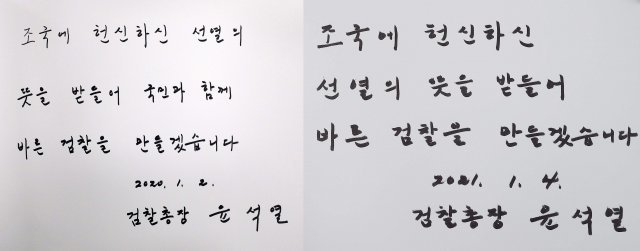 조국에 헌신하신 선열의
뜻을 받들어 국민과 함께
바른 검찰을 만들겠습니다
2020. 1. 2.
검찰총장 윤석열
조국에 헌신하신
선열의 뜻을 받들어
바른 검찰을 만들겠습니다
2021. 1. 4.
검찰총장 윤석열